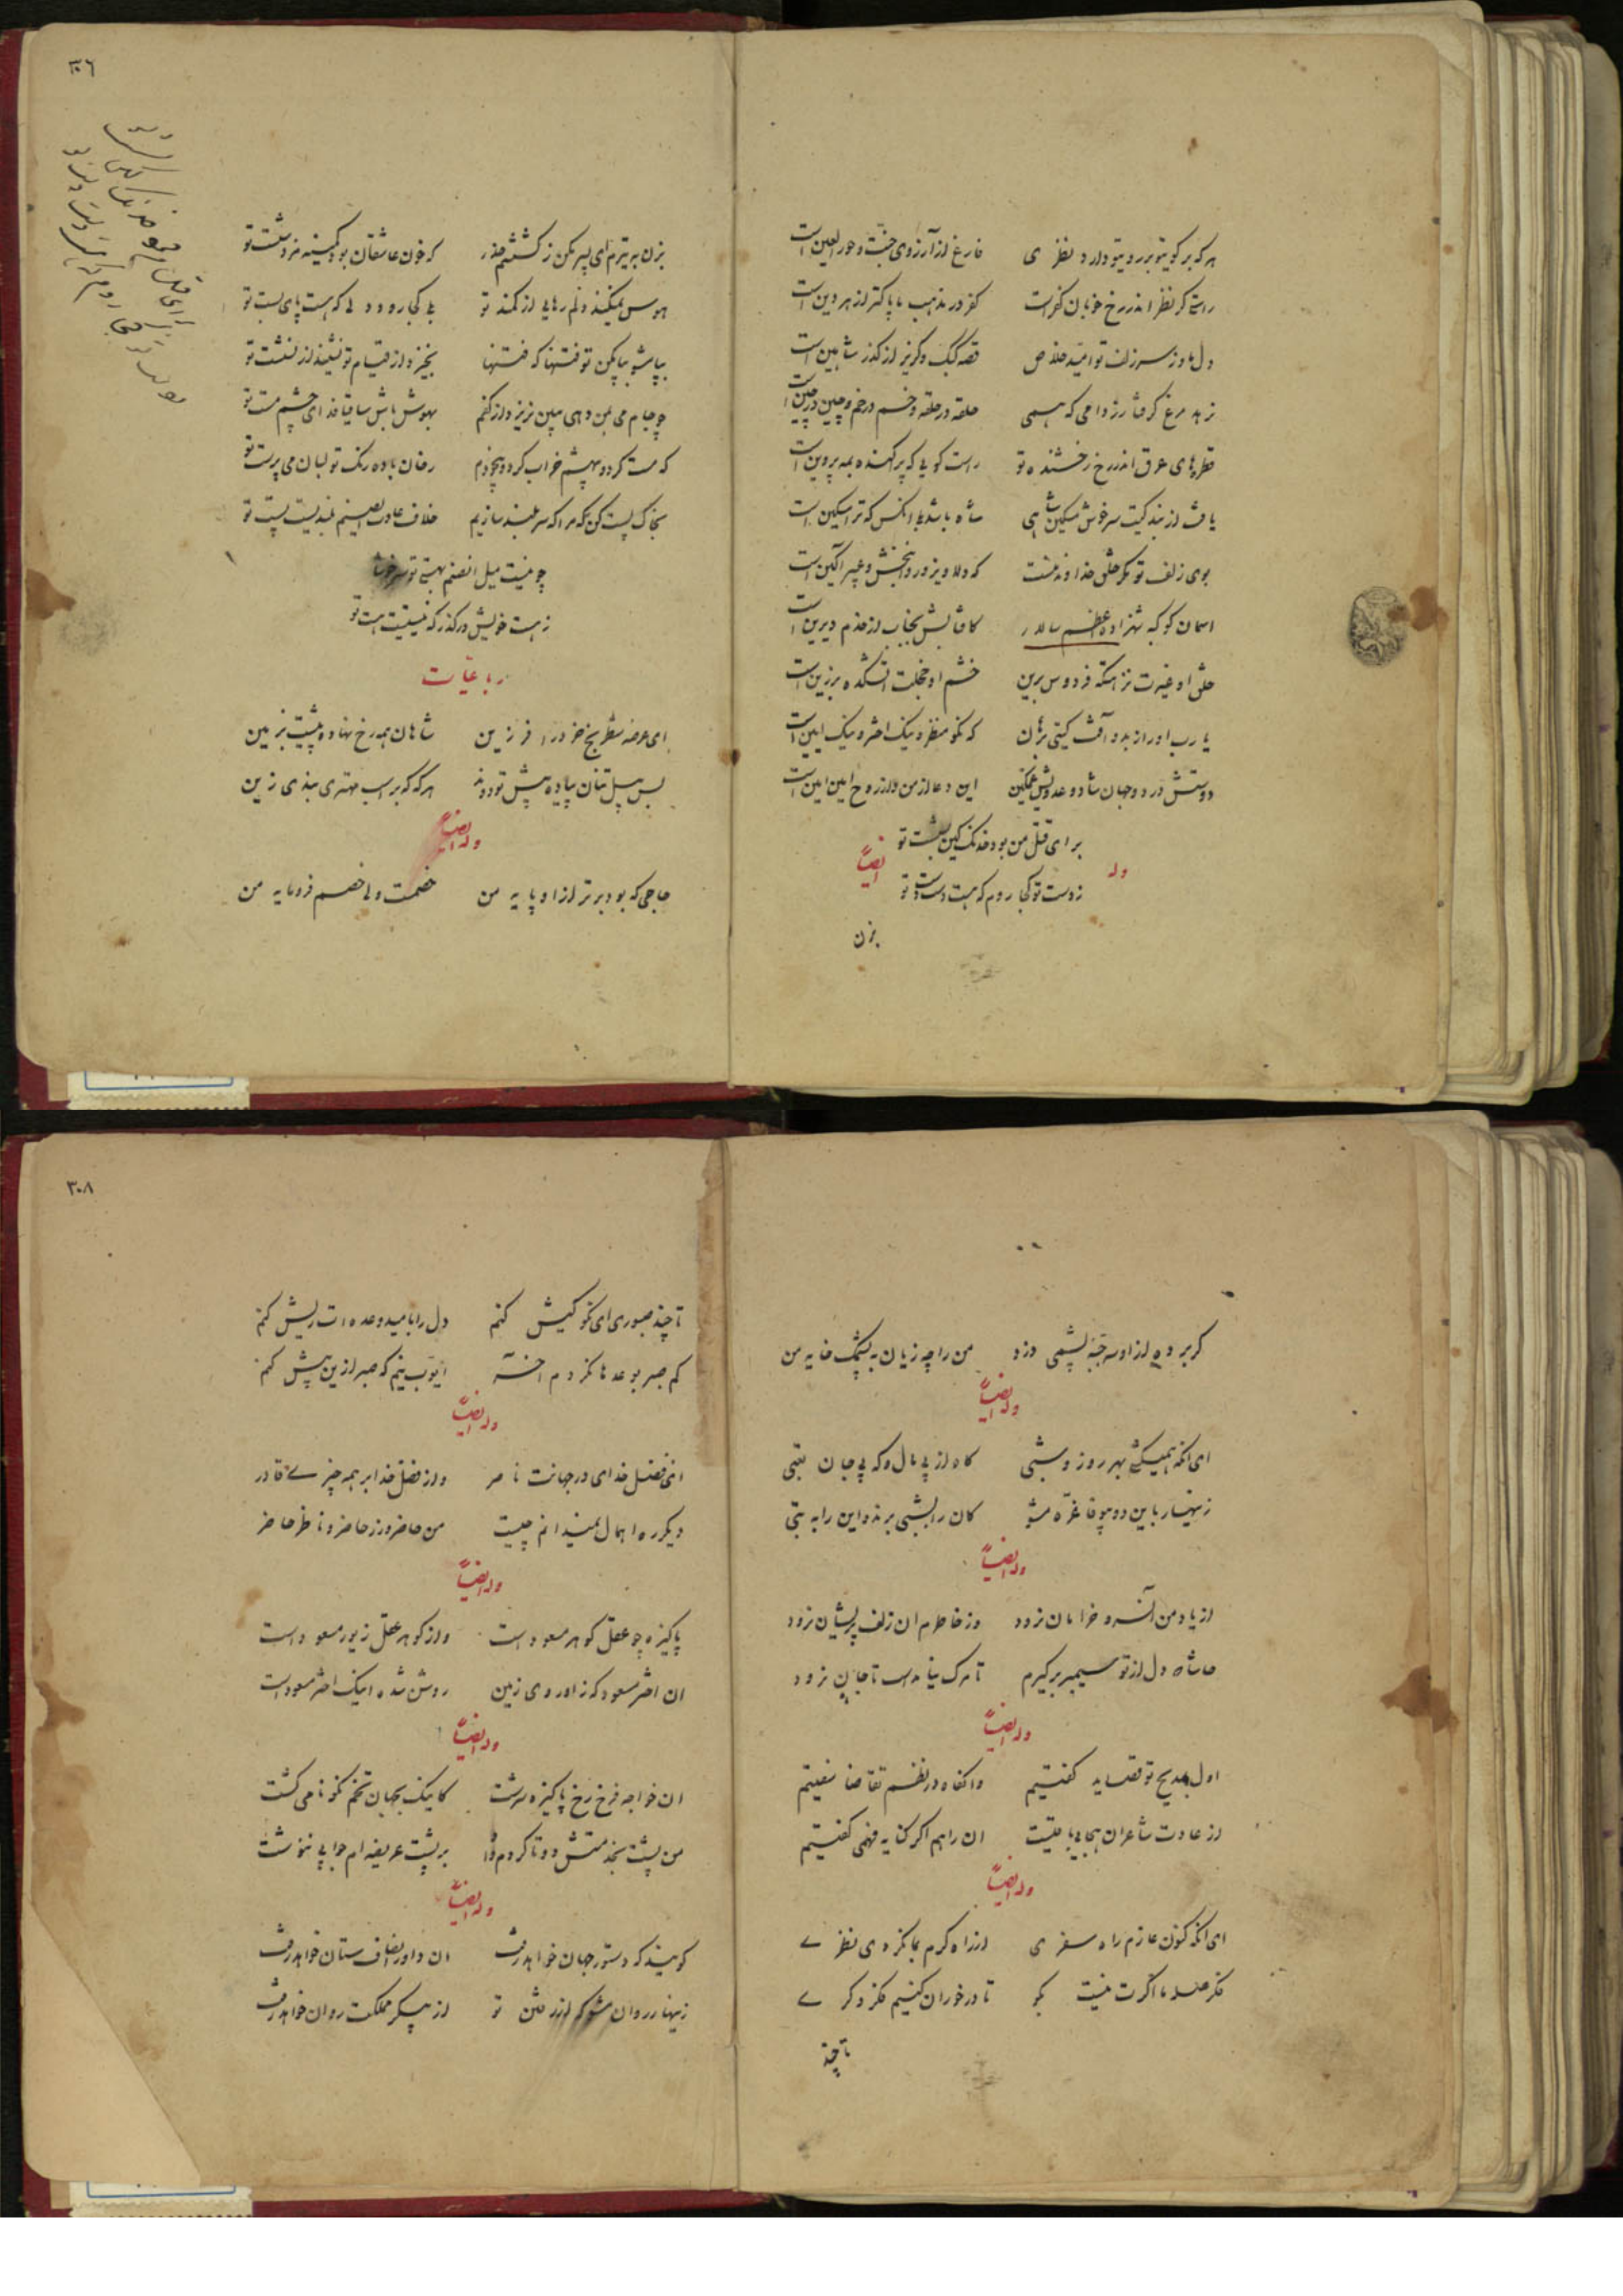 هر که بر کویتو بر رویتو دارد نظری فارغ از آرزوی جنت و حورالعین است
راستی گر نظر اندر رخ خوبان کفر است کفر در مذهب ما پاکتر از هر دین است
دل ما وز سر زلف تو امید خلاص قصه کبک و گریز از گذر شاهین است
نرهد مرغ گرفتار ز دامی که همی حلقه در حلقه و خم در خم و چین در چین است
قطره‌های عرق اندر رخ رخشنده تو راست گویی که پراکنده بمه پروین است
یافت از بندگیت سرخوش مسکین شاهی شاه باشد بلی آنکس که ترا مسکین است
بوی زلف تو مگر خلق خداوند منست که دلاویز و روانبخش و عبیرآگین است
آسمان کوکبه شهزاده اعظم سالار
خلق او غیرت نزهتگه فردوس برین خشم او خجلت آتشکده برزین است
یا رب او را ز بد و آفت گیتی برهان که نکو منظر و نیک اختر و نیک آیین است
دوستش در دو جهان شاد و عدویش غمگین این دعا از من و از روح امین آمین است
وله ایضاً
برای قتل من بود خدنگ کین بشست تو
ز دست تو کجا روم که هست دست دست تو
بزن
۳۰۶
بزن بر تیرم ای پسر مکن ز کشتنم حذر که خون عاشقان بود کمینه مزد شست تو
هوس نمیکند دلم رهایی از کمند تو بلی کجا رود دلی که هست پای بست تو
بپا شو بپا مکن تو فتنها که فتنها بخیزد از قیام تو نشیند از نشست تو
چو جام می بمن دهی مبین بریزد از کفم بهوش باش ساقیا فدای چشم مست تو
که مست کرد و بیهشم خراب کرد و بیخودم رخان باده رنگ تو لبان می پرست تو
بخاک پست کن مرا که سر بلند سازیم خلاف عادت ای صنم بلندیست پست تو
چو نیست میل آنصنم بهستی تو سرخوشا
ز هست خویش درگذر که نیستیست هست تو
رباعیات
ای عرصه شطرنج خرد را فرزین شاهان همه رخ نهاده پیشت بزمین
بس پیل تنان پیاده پیش تو دوند هر گه که بر اسب مهتری بندی زین
وله ایضاً
حاجی که بود برتر از او پایه من خصمست ولی خصم فرومایه من
گر برده از او سه جبه پشمی دزد من را چه زیان به پشمک خایه من
وله ایضاً
ای آنکه همیشه بهر روز و شبی گاه از پی مال و گه پی جان بتبی
زنهار باین دو بیوفا غره مشو کان را بشبی برند و این را به تبی
وله ایضاً
از یاد من آن سرو خرامان نرود وز خاطرم آن زلف پریشان نرود
حاشا دل از تو سیمبر برگیرم تا مرگ نیاید تا جان نرود
وله ایضاً
اول بمدیح تو قصاید گفتیم وانگاه در نظم تقاضا سفتیم
از عادت شاعران هجا باقیست آن را هم اگر کنایه فهمی گفتیم
وله ایضاً
ای آنکه کنون عازم راه سفری از راه کرم بما نکردی نظری
فکر صله ما اگرت نیست بگو تا در خور آن کنیم فکر دگری
تا چند
۳۰۸
تا چند صبوری ای نکو کیش کنم دل را بامید وعده‌ات ریش کنم
کم صبر بوعدها نکردم آخر ایوب نیم که صبر از این بیش کنم
وله ایضاً
ای فضل خدای در جهانت ناصر و از فضل خدا بر همه چیزی قادر
دیگر ره اهمال نمیدانم چیست من حاضر و زر حاضر و ناظر حاضر
وله ایضاً
پاکیزه چو عقل گوهر مسعود است و از گوهر عقل زیور مسعود است
آن اختر مسعود که ز او روی زمین روشن شده اینک اختر مسعود است
وله ایضاً
آن خواجه فرخ رخ پاکیزه سرشت کاینک بجهان تخم نکونامی کشت
من پشت بخدمتش دو تا کردم و او بر پشت عریضه‌ام جوابی ننوشت
وله ایضاً
گویند که دستور جهان خواهد رفت آن داور انصاف ستان خواهد رفت
زینهار روان مشو که از رفتن تو از پیکر مملکت روان خواهد رفت